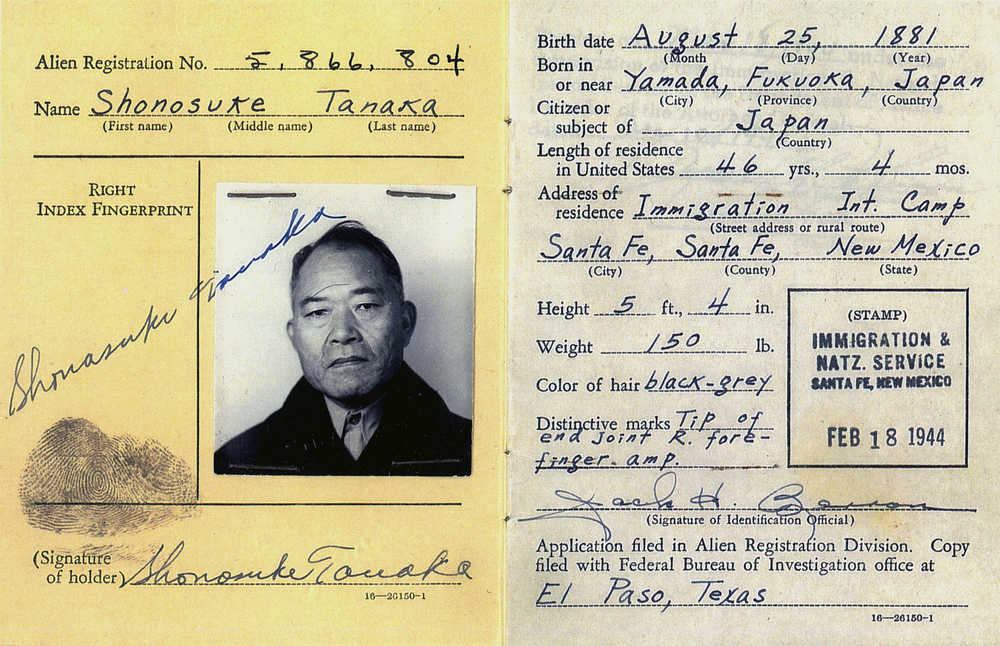 Alien Registration No. 5,866,804
Name Shonosuke Tanaka
(First name) (Middle name) (Last name)
RIGHT
INDEX FINGERPRINT
Shonasuke Tanaka
(Signature
of holder) Shonosuke Tanaka
16—26150-1
Birth date August 25, 1881
(Month (Day) (Year)
Born in
or near Yamada, Fukuoka, Japan
(City) (Province) (Country)
Citizen or
subject of Japan
(Country)
Length of residence
in United States 46 yrs., 4 mos.
Address of
residence Immigration Int. Camp
(Street address or rural route)
Santa Fe, Santa Fe, New Mexico
(City) (County) (State)
Height 5 ft., 4 in.
Weight 150 lb.
Color of hair black-grey
Distinctive marks Tip of
end joint R. fore-
finger amp.
(STAMP)
IMMIGRATION &
NATZ. SERVICE
SANTA FE, NEW MEXICO
FEB 18 1944
Jack H.
(Signature of Identification Official)
Application filed in Alien Registration Division. Copy
filed with Federal Bureau of Investigation office at
El Paso, Texas
16—26150-1